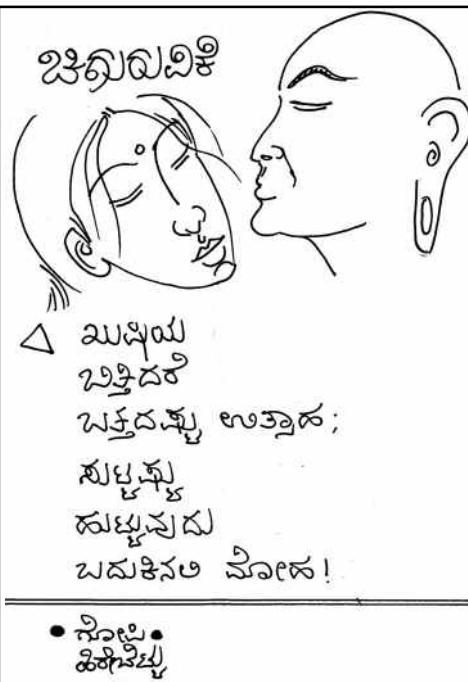 ಚಿಗುರುವಿಕೆ
ಖುಷಿಯ
ಬಿತ್ತಿದರೆ
ಬತ್ತದಷ್ಟು ಉತ್ಸಾಹ;
ಸುಟ್ಟಷ್ಟು
ಹುಟ್ಟುವುದು
ಬದುಕಿನಲಿ ಮೋಹ!
ಗೋಪಿ
ಹಿರೇಬೆಟ್ಟು